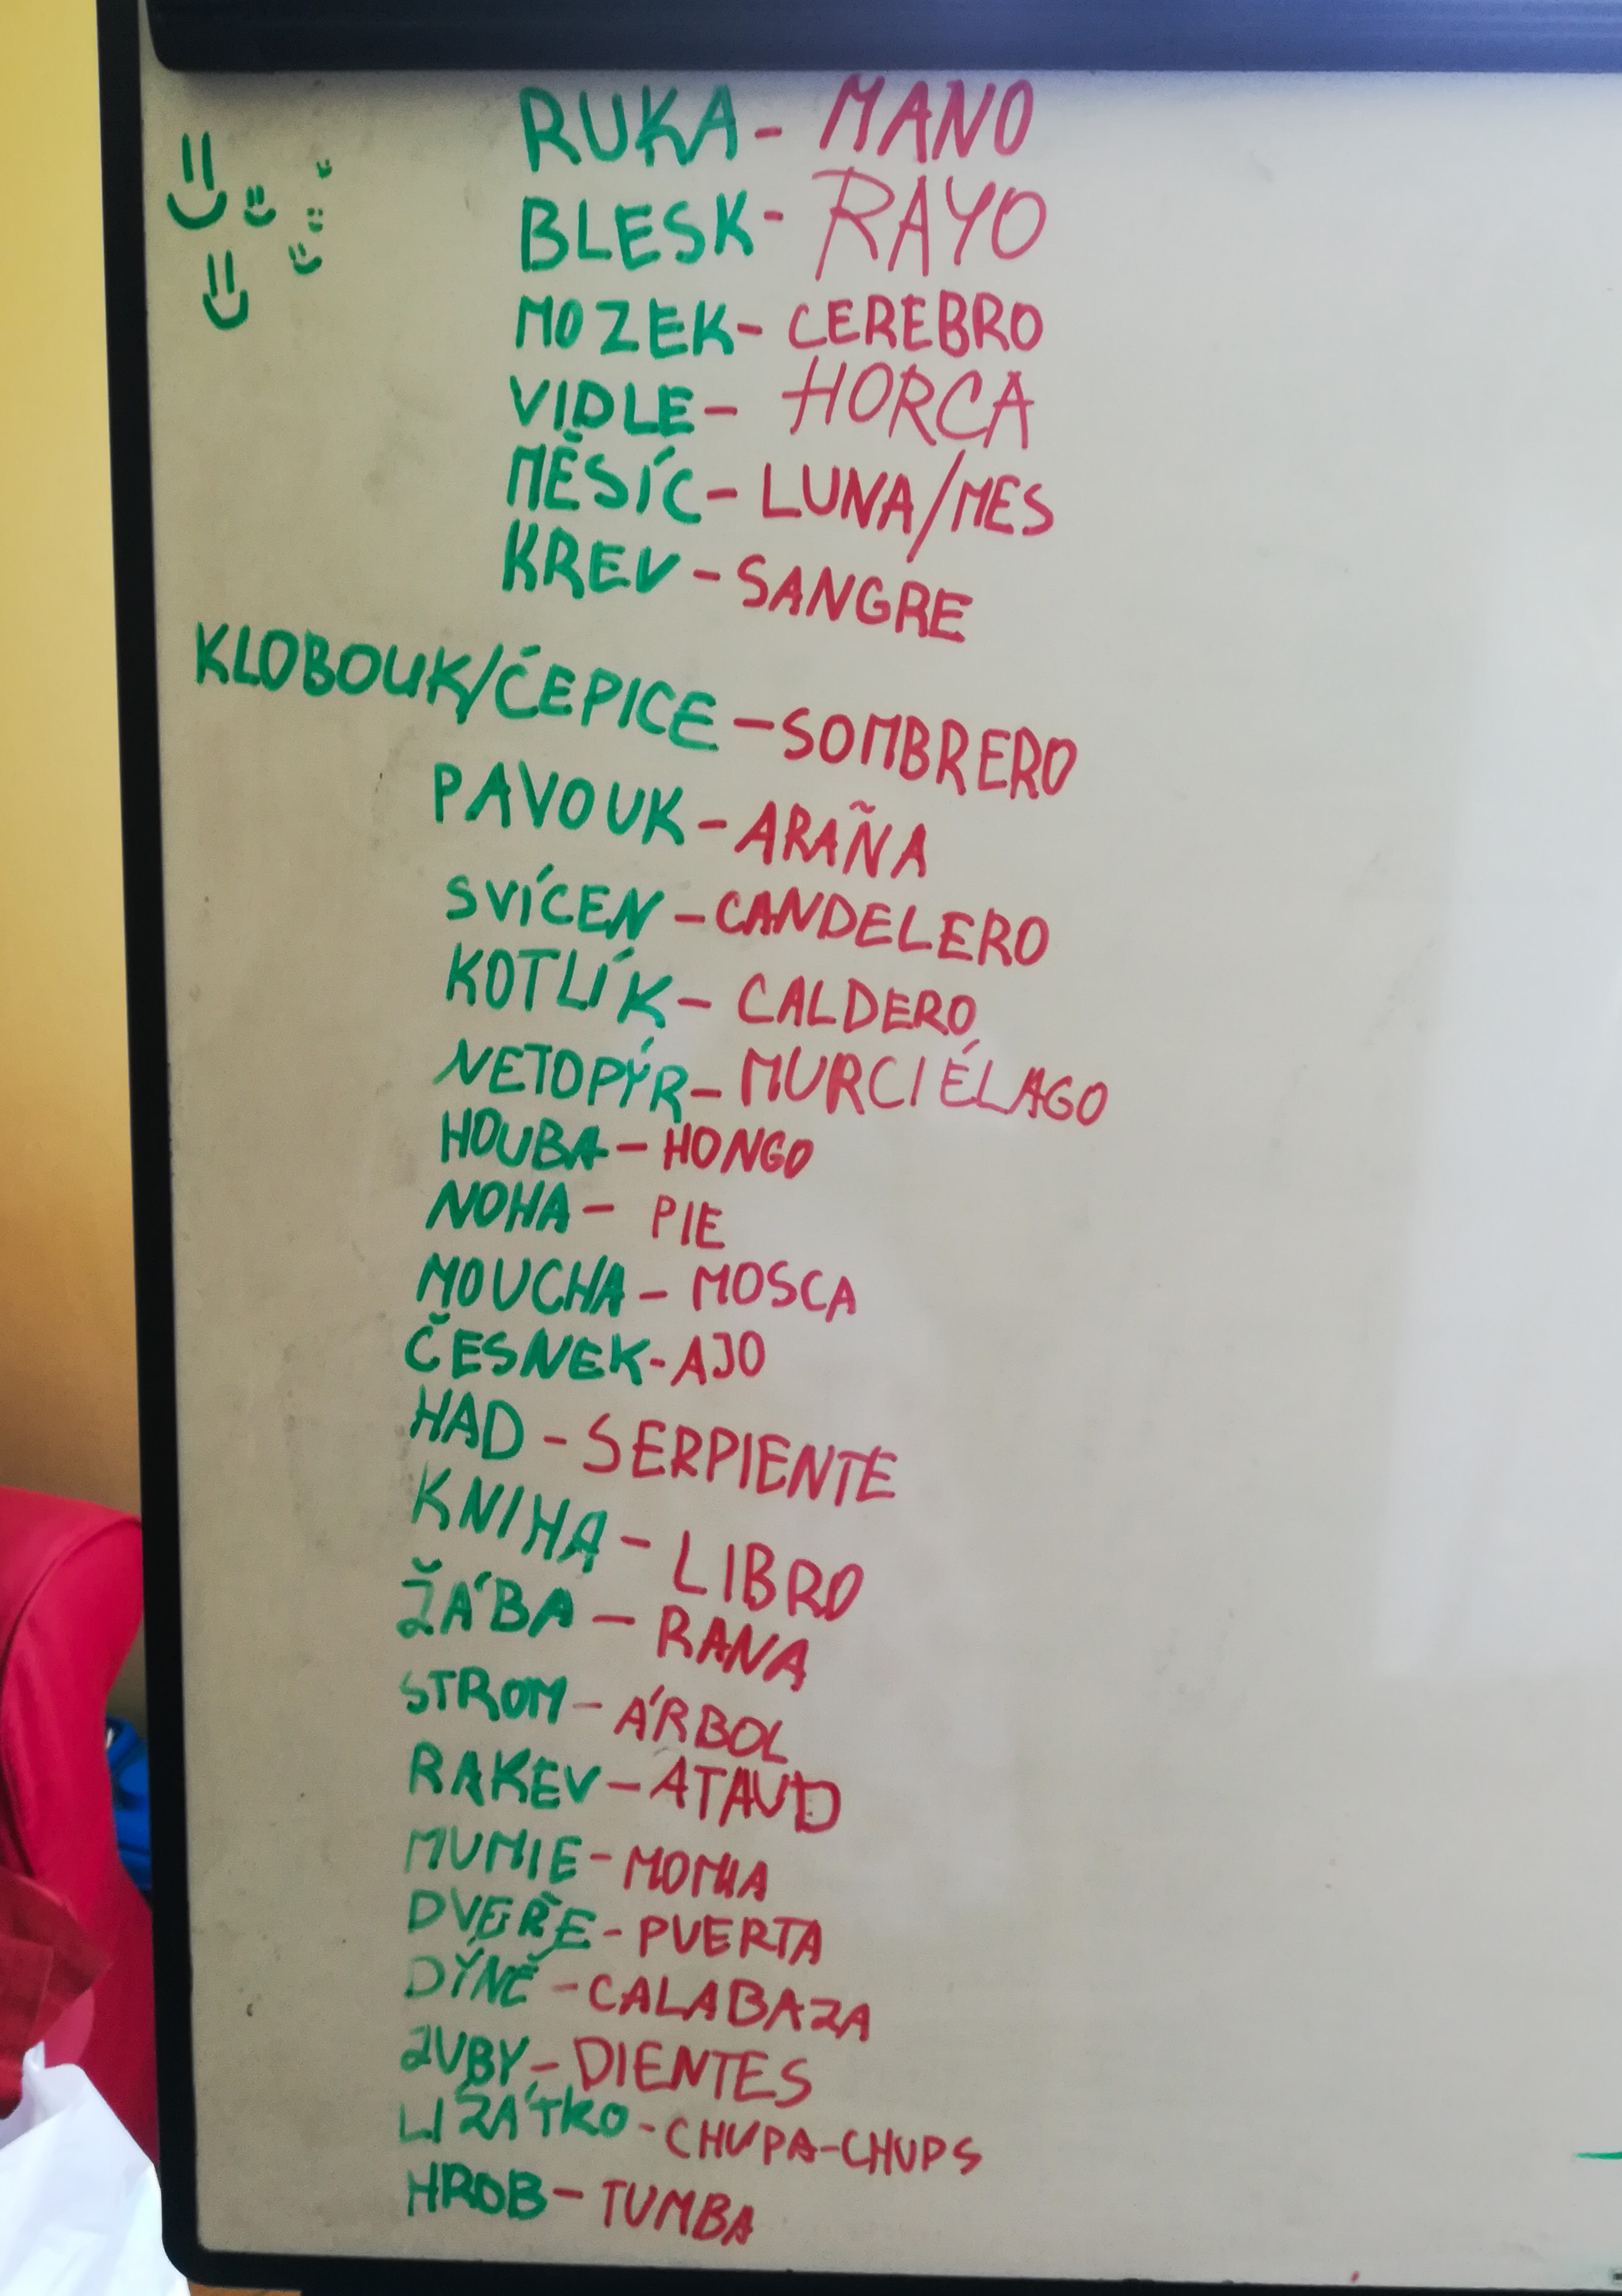 RUKA - MANO
BLESK - RAYO
MOZEK - CEREBRO
VIDLE - HORCA
MĚSÍC - LUNA/MES
KREV - SANGRE
KLOBOUK/ČEPICE - SOMBRERO
PAVOUK - ARAÑA
SVÍCEN - CANDELERO
KOTLÍK - CALDERO
NETOPÝR - MURCIÉLAGO
HOUBA - HONGO
NOHA - PIE
MOUCHA - MOSCA
ČESNEK - AJO
HAD - SERPIENTE
KNIHA - LIBRO
ŽÁBA - RANA
STROM - ÁRBOL
RAKEV - ATAUD
MUMIE - MOMIA
DVEŘE - PUERTA
DÝNĚ - CALABAZA
ZUBY - DIENTES
LIZÁTKO - CHUPA-CHUPS
HROB - TUMBA